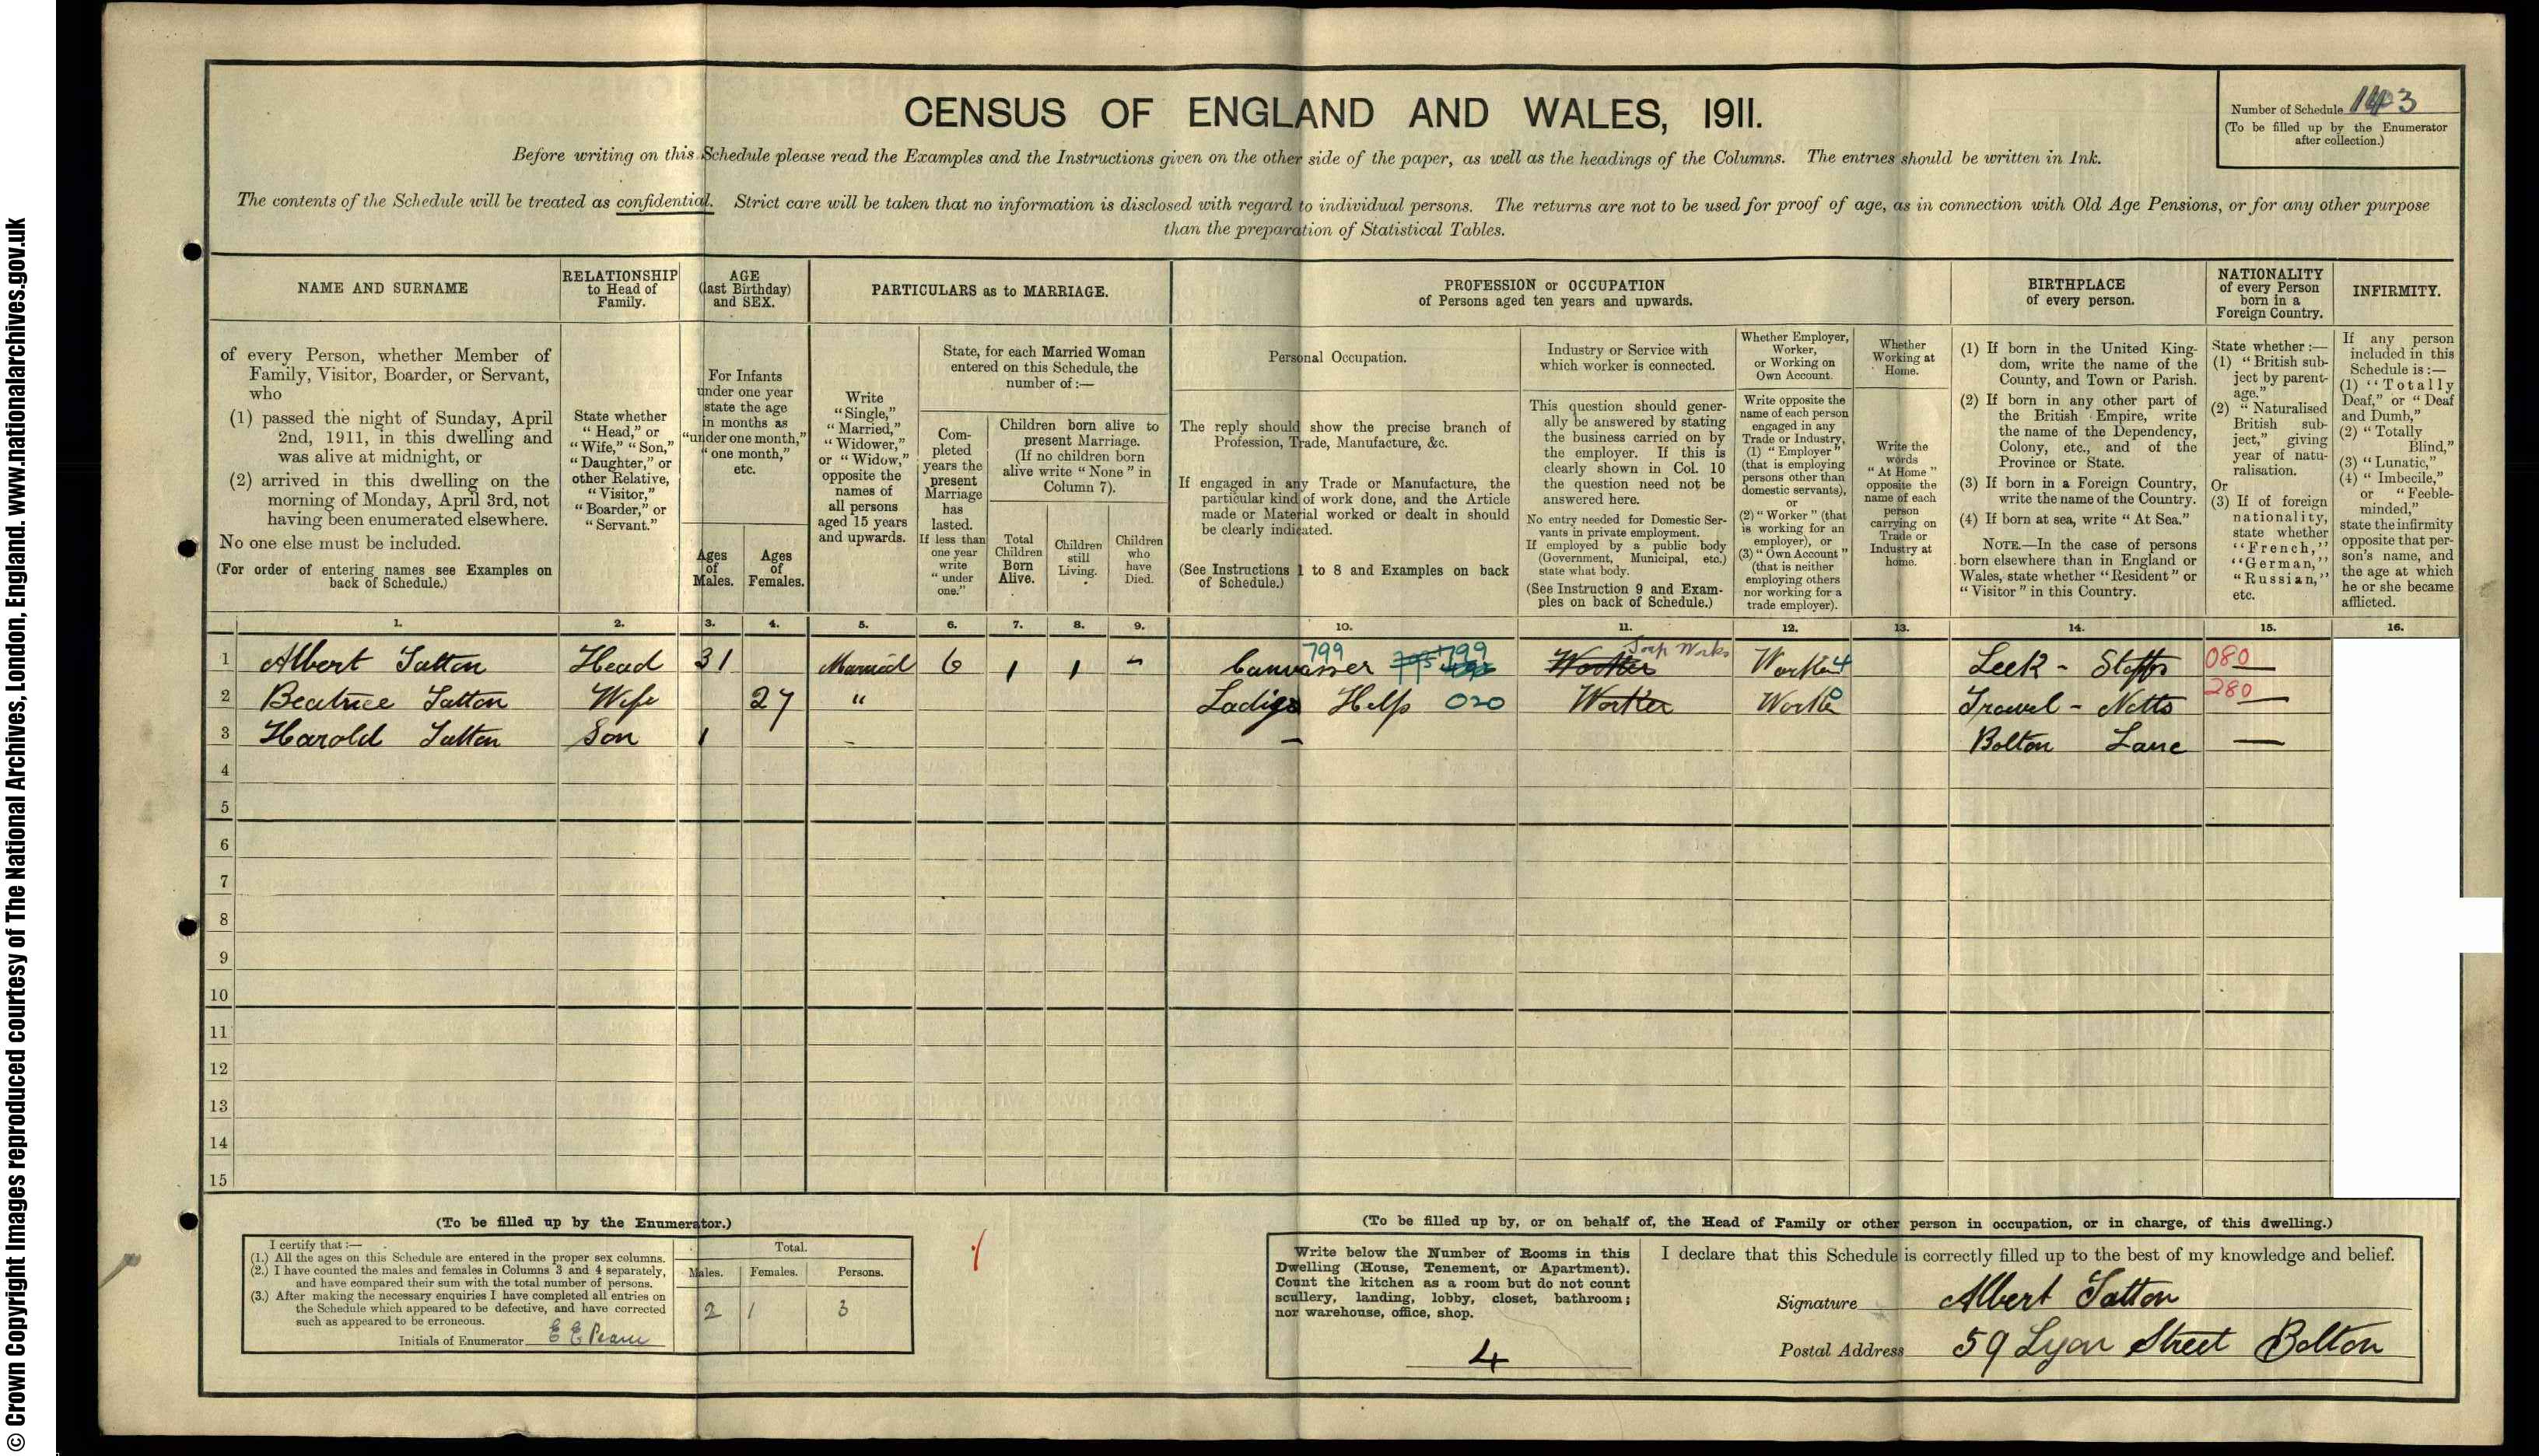 © Crown Copyright Images reproduced courtesy of The National Archives, London, England. www.nationalarchives.gov.uk
CENSUS OF ENGLAND AND WALES, 1911.
Number of Schedule 143
(To be filled up by the Enumerator
after collection.)
Before writing on this Schedule please read the Examples and the Instructions given on the other side of the paper, as well as the headings of the Columns. The entries should be written in Ink.
The contents of the Schedule will be treated as confidential. Strict care will be taken that no information is disclosed with regard to individual persons. The returns are not to be used for proof of age, as in connection with Old Age Pensions, or for any other purpose
than the preparation of Statistical Tables.
NAME AND SURNAME
of every Person, whether Member of
Family, Visitor, Boarder, or Servant,
who
(1) passed the night of Sunday, April
2nd, 1911, in this dwelling and
was alive at midnight, or
(2) arrived in this dwelling on the
morning of Monday, April 3rd, not
having been enumerated elsewhere.
No one else must be included.
(For order of entering names see Examples on
back of Schedule.)
RELATIONSHIP
to Head of
Family.
State whether
"Head," or
"Wife," "Son,"
"Daughter," or
other Relative,
"Visitor,"
"Boarder," or
"Servant."
AGE
(last Birthday)
and SEX.
For Infants
under one year
state the age
in months as
"under one month,"
"one month,"
etc.
Ages
of
Males.
Ages
of
Females.
PARTICULARS as to MARRIAGE.
Write
"Single,"
"Married,"
"Widower,"
or "Widow,"
opposite the
names of
all persons
aged 15 years
and upwards.
State, for each Married Woman
entered on this Schedule, the
number of :—
Com-
pleted
years the
present
Marriage
has
lasted.
If less than
one year
write
"under
one."
Children born alive to
present Marriage.
(If no children born
alive write "None" in
Column 7).
Total
Children
Born
Alive.
Children
still
Living.
Children
who
have
Died.
PROFESSION or OCCUPATION
of Persons aged ten years and upwards.
Personal Occupation.
The reply should show the precise branch of
Profession, Trade, Manufacture, &c.
If engaged in any Trade or Manufacture, the
particular kind of work done, and the Article
made or Material worked or dealt in should
be clearly indicated.
(See Instructions 1 to 8 and Examples on back
of Schedule.)
Industry or Service with
which worker is connected.
This question should gener-
ally be answered by stating
the business carried on by
the employer. If this is
clearly shown in Col. 10
the question need not be
answered here.
No entry needed for Domestic Ser-
vants in private employment.
If employed by a public body
(Government, Municipal, etc.)
state what body.
(See Instruction 9 and Exam-
ples on back of Schedule.)
Whether Employer,
Worker,
or Working on
Own Account.
Write opposite the
name of each person
engaged in any
Trade or Industry,
(1) "Employer"
(that is employing
persons other than
domestic servants),
or
(2) "Worker" (that
is working for an
employer), or
(3) "Own Account"
(that is neither
employing others
nor working for a
trade employer).
Whether
Working at
Home.
Write the
words
"At Home"
opposite the
name of each
person
carrying on
Trade or
Industry at
home.
BIRTHPLACE
of every person.
(1) If born in the United King-
dom, write the name of the
County, and Town or Parish.
(2) If born in any other part of
the British Empire, write
the name of the Dependency,
Colony, etc., and of the
Province or State.
(3) If born in a Foreign Country,
write the name of the Country.
(4) If born at sea, write "At Sea."
NOTE.—In the case of persons
born elsewhere than in England or
Wales, state whether "Resident" or
"Visitor" in this Country.
NATIONALITY
of every Person
born in a
Foreign Country.
State whether :—
(1) "British sub-
ject by parent-
age."
(2) "Naturalised
British sub-
ject," giving
year of natu-
ralisation.
Or
(3) If of foreign
nationality,
state whether
"French,"
"German,"
"Russian,"
etc.
INFIRMITY.
If any person
included in this
Schedule is :—
(1) "Totally
Deaf," or "Deaf
and Dumb,"
(2) "Totally
Blind,"
(3) "Lunatic,"
(4) "Imbecile,"
or "Feeble-
minded,"
state the infirmity
opposite that per-
son's name, and
the age at which
he or she became
afflicted.
1. 2. 3. 4. 5. 6. 7. 8. 9. 10. 11. 12. 13. 14. 15. 16.
1 Albert Tatton Head 31 Married 6 1 1 - Canvasser 799 799 Worker Soap Works Worker 4 Leek - Staffs 080 —
2 Beatrice Tatton Wife 27 " Ladies Help 020 Worker Worker 0 Trowel - Notts 280 —
3 Harold Tatton Son 1 – – Bolton Lanc —
4
5
6
7
8
9
10
11
12
13
14
15
(To be filled up by the Enumerator.)
I certify that :—
(1.) All the ages on this Schedule are entered in the proper sex columns.
(2.) I have counted the males and females in Columns 3 and 4 separately,
and have compared their sum with the total number of persons.
(3.) After making the necessary enquiries I have completed all entries on
the Schedule which appeared to be defective, and have corrected
such as appeared to be erroneous.
Initials of Enumerator E E
Total.
Males. Females. Persons.
2 1 3
(To be filled up by, or on behalf of, the Head of Family or other person in occupation, or in charge, of this dwelling.)
Write below the Number of Rooms in this
Dwelling (House, Tenement, or Apartment).
Count the kitchen as a room but do not count
scullery, landing, lobby, closet, bathroom;
nor warehouse, office, shop.
4
I declare that this Schedule is correctly filled up to the best of my knowledge and belief.
Signature Albert Tatton
Postal Address 59 Lyon Street Bolton